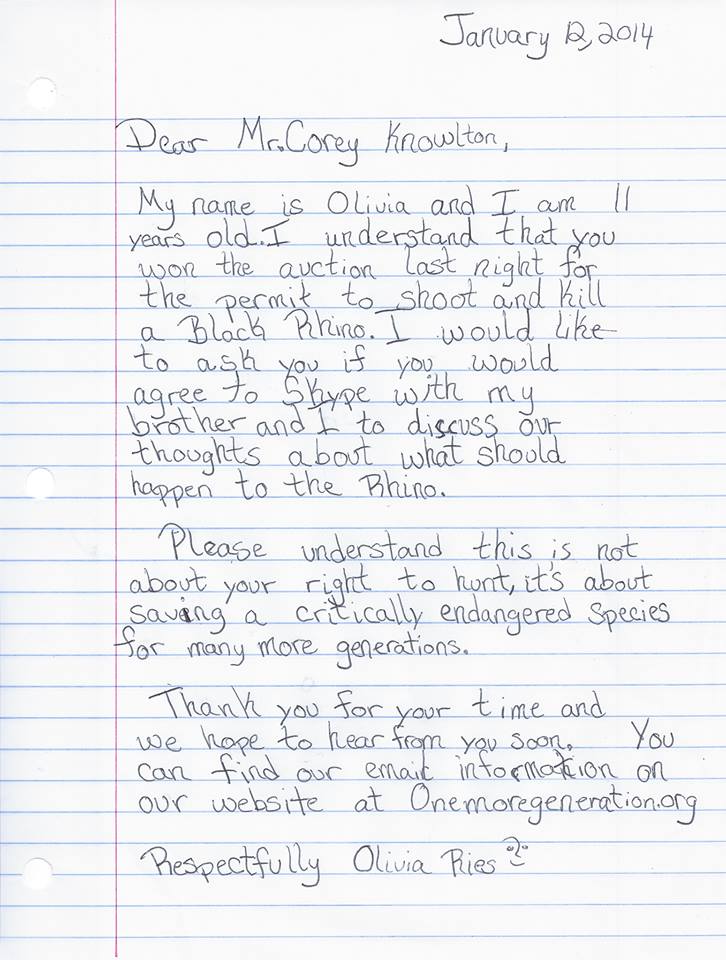 January 12, 2014
Dear Mr. Corey Knowlton,
My name is Olivia and I am 11
years old. I understand that you
won the auction last night for
the permit to shoot and kill
a Black Rhino. I would like
to ask you if you would
agree to Skype with my
brother and I to discuss our
thoughts about what should
happen to the Rhino.
Please understand this is not
about your right to hunt, it's about
saving a critically endangered species
for many more generations.
Thank you for your time and
we hope to hear from you soon. You
can find our email information on
our website at Onemoregeneration.org
Respectfully Olivia Ries